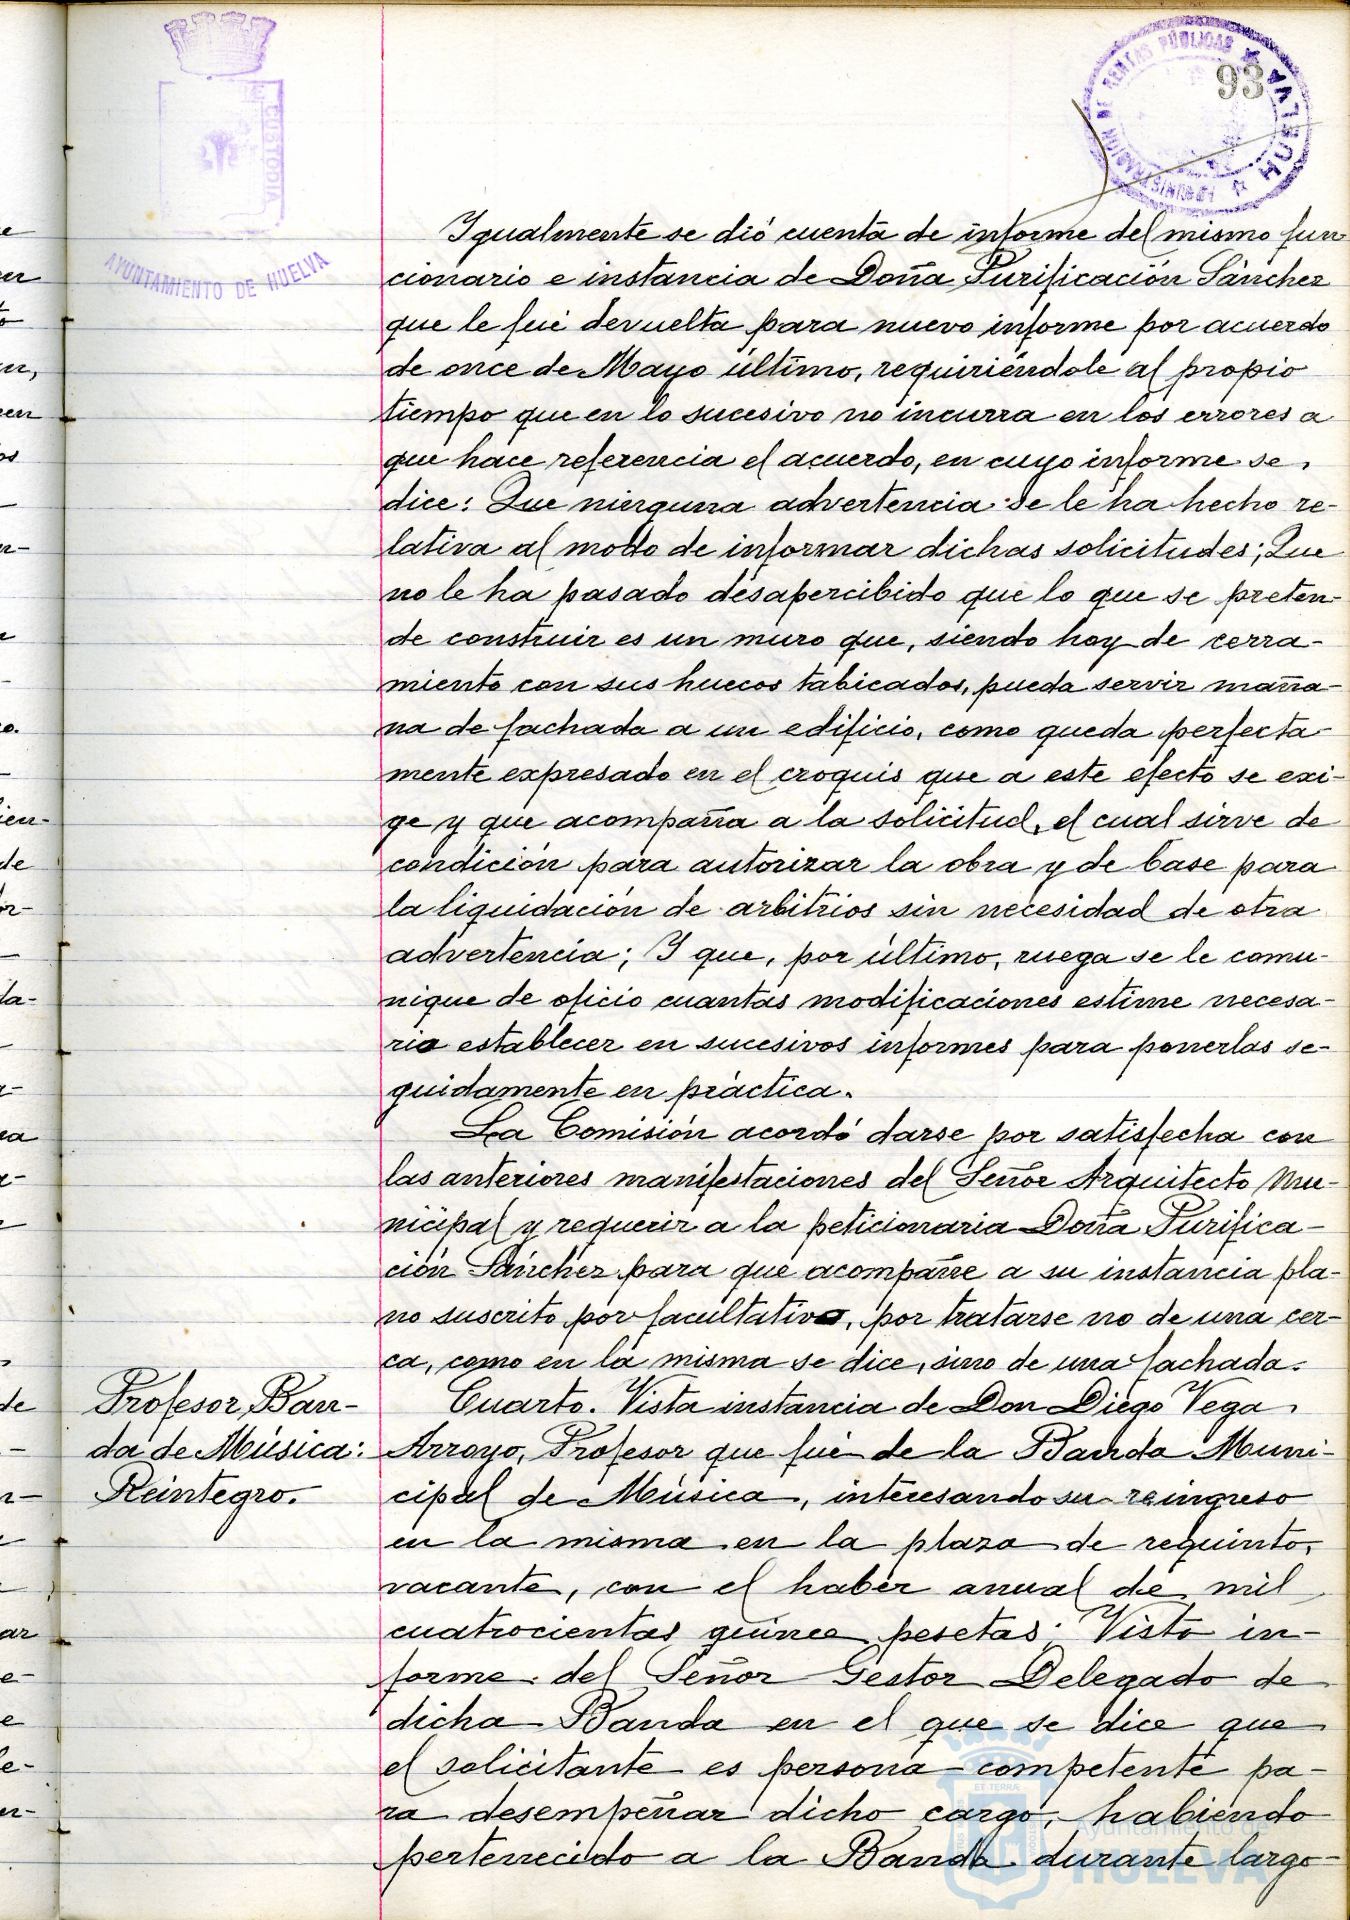 93
ADMINISTRACION DE RENTAS PÚBLICAS
HUELVA
CUSTODIA
AYUNTAMIENTO DE HUELVA
Igualmente se dió cuenta de informe del mismo fun
cionario e instancia de Doña Purificación Sánchez
que le fué devuelta para nuevo informe por acuerdo
de once de Mayo último, requiriéndole al propio
tiempo que en lo sucesivo no incurra en los errores a
que hace referencia el acuerdo, en cuyo informe se
dice: Que ninguna advertencia se le ha hecho re-
lativa al modo de informar dichas solicitudes; Que
no le ha pasado desapercibido que lo que se preten-
de construir es un muro que, siendo hoy de cerra-
miento con sus huecos tabicados, pueda servir maña-
na de fachada a un edificio, como queda perfecta-
mente expresado en el croquis que a este efecto se exi-
ge y que acompaña a la solicitud, el cual sirve de
condición para autorizar la obra y de base para
la liquidación de arbitrios sin necesidad de otra
advertencia; Y que, por último, ruega se le comu-
nique de oficio cuantas modificaciones estime necesa-
rio establecer en sucesivos informes para ponerlas se-
guidamente en práctica.
La Comisión acordó darse por satisfecha con
las anteriores manifestaciones del Señor Arquitecto Mu-
nicipal y requerir a la peticionaria Doña Purifica-
ción Sánchez para que acompañe a su instancia pla-
no suscrito por facultativo, por tratarse no de una cer-
ca, como en la misma se dice, sino de una fachada.
Profesor Ban-
da de Música:
Reintegro.
Cuarto. Vista instancia de Don Diego Vega
Arroyo, Profesor que fué de la Banda Muni-
cipal de Música, interesando su reingreso
en la misma en la plaza de requinto,
vacante, con el haber anual de mil
cuatrocientas quince pesetas; Visto in-
forme del Señor Gestor Delegado de
dicha Banda en el que se dice que
el solicitante es persona competente pa-
ra desempeñar dicho cargo, habiendo
pertenecido a la Banda durante largo-
Ayuntamiento de
HUELVA